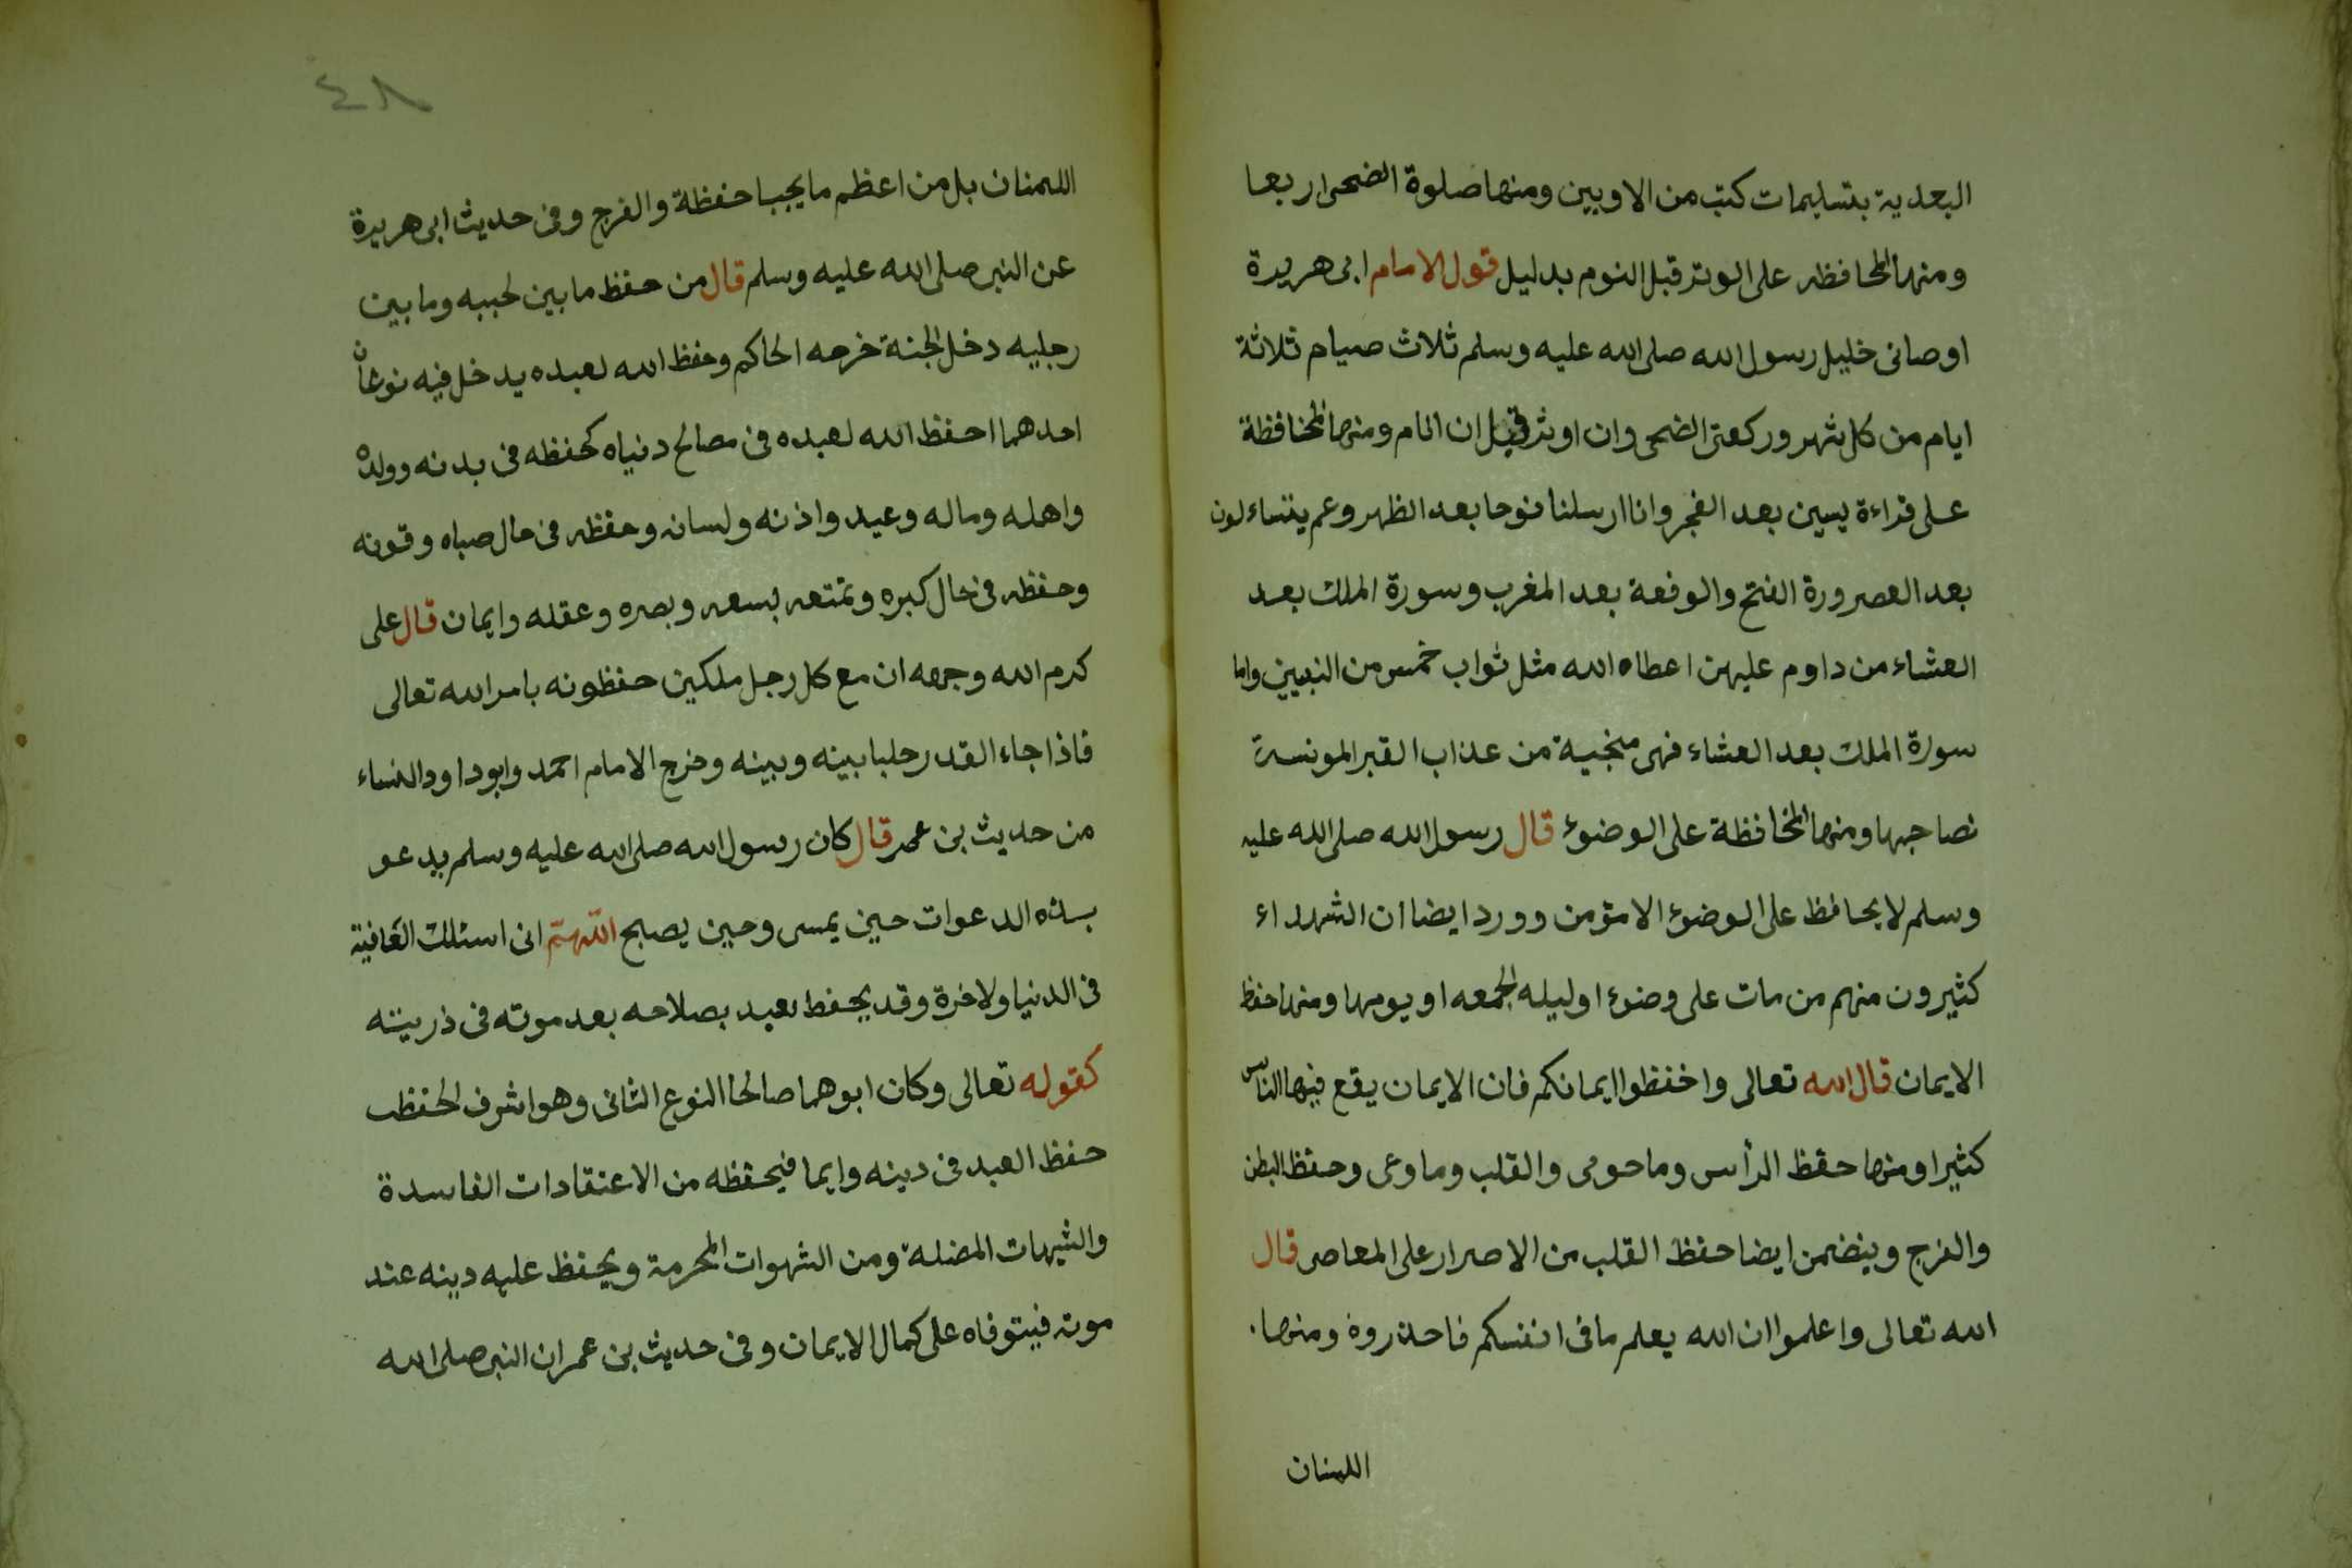 البعدية بتسليمات كتب من الاوبين ومنها صلوة الضحى اربعا
ومنها المحافظه على الوتر قبل النوم بدليل قول الامام ابى هريرة
اوصانى خليل رسول الله صلى الله عليه وسلم ثلاث صيام ثلاثة
ايام من كل شهر وركعتى الضحى وان اوتر قبل ان انام ومنها المحافظة
على قراءة يسين بعد الفجر وانا ارسلنا نوحا بعد الظهر وعم يتساءلون
بعد العصر ورة الفتح والوقعة بعد المغرب وسورة الملك بعد
العشاء من داوم عليهن اعطاه الله مثل ثواب خمس من النبيين واما
سورة الملك بعد العشاء فهى منجية من عذاب القبر المونسة
نصاجها ومنها المحافظة على الوضوء قال رسول الله صلى الله عليه
وسلم لا يحافظ على الوضوء الا مؤمن وورد ايضا ان الشهداء
كثيرون منهم من مات على وضوء اوليله الجمعه او يومها ومنها حفظ
الايمان قال الله تعالى واحفظوا ايمانكم فان الايمان يقع فيها الناس
كثيرا ومنها حفظ الرأس وما حوى والقلب وما وعى وحفظ البطن
والفرج ويتضمن ايضا حفظ القلب من الاصرار على المعاصى قال
الله تعالى واعلموا ان الله يعلم ما فى انفسكم فاحذروه ومنها.
اللمنان
٤٨
اللمنان بل من اعظم ما يجب احفظة والفرج وفى حديث ابى هريرة
عن النبى صلى الله عليه وسلم قال من حفظ ما بين لحييه وما بين
رجليه دخل الجنة خرجه الحاكم وحفظ الله لعبده يدخل فيه نوعان
احدهما احفظ الله لعبده فى مصالح دنياه كحفظه فى بدنه وولده
واهله وماله وعيد واذنه ولسانه وحفظه فى حال صباه وقوته
وحفظه فى حال كبره وتمتعه بسعه وبصره وعقله وايمان قال على
كرم الله وجهه ان مع كل رجل ملكين حفظونه بامر الله تعالى
فاذا جاء القدر رحلبا بينه وبينه وخرج الامام احمد وابوداود النساء
من حديث بن عمر قال كان رسول الله صلى الله عليه وسلم يدعو
بهذه الدعوات حين يمسى وحين يصبح اللهم انى اسئلك العافية
فى الدنيا ولاخرة وقد يحفظ لعبد بصلاحه بعد موته فى ذريته
كقوله تعالى وكان ابوهما صالحا النوع الثانى وهو اشرف الحفظ
حفظ العبد فى دينه وايما فيحفظه من الاعتقادات الفاسدة
والشبهات المضلة ومن الشهوات المحرمة ويحفظ عليه دينه عند
موته فيتوفاه على كمال الايمان وفى حديث بن عمر ان النبى صلى الله